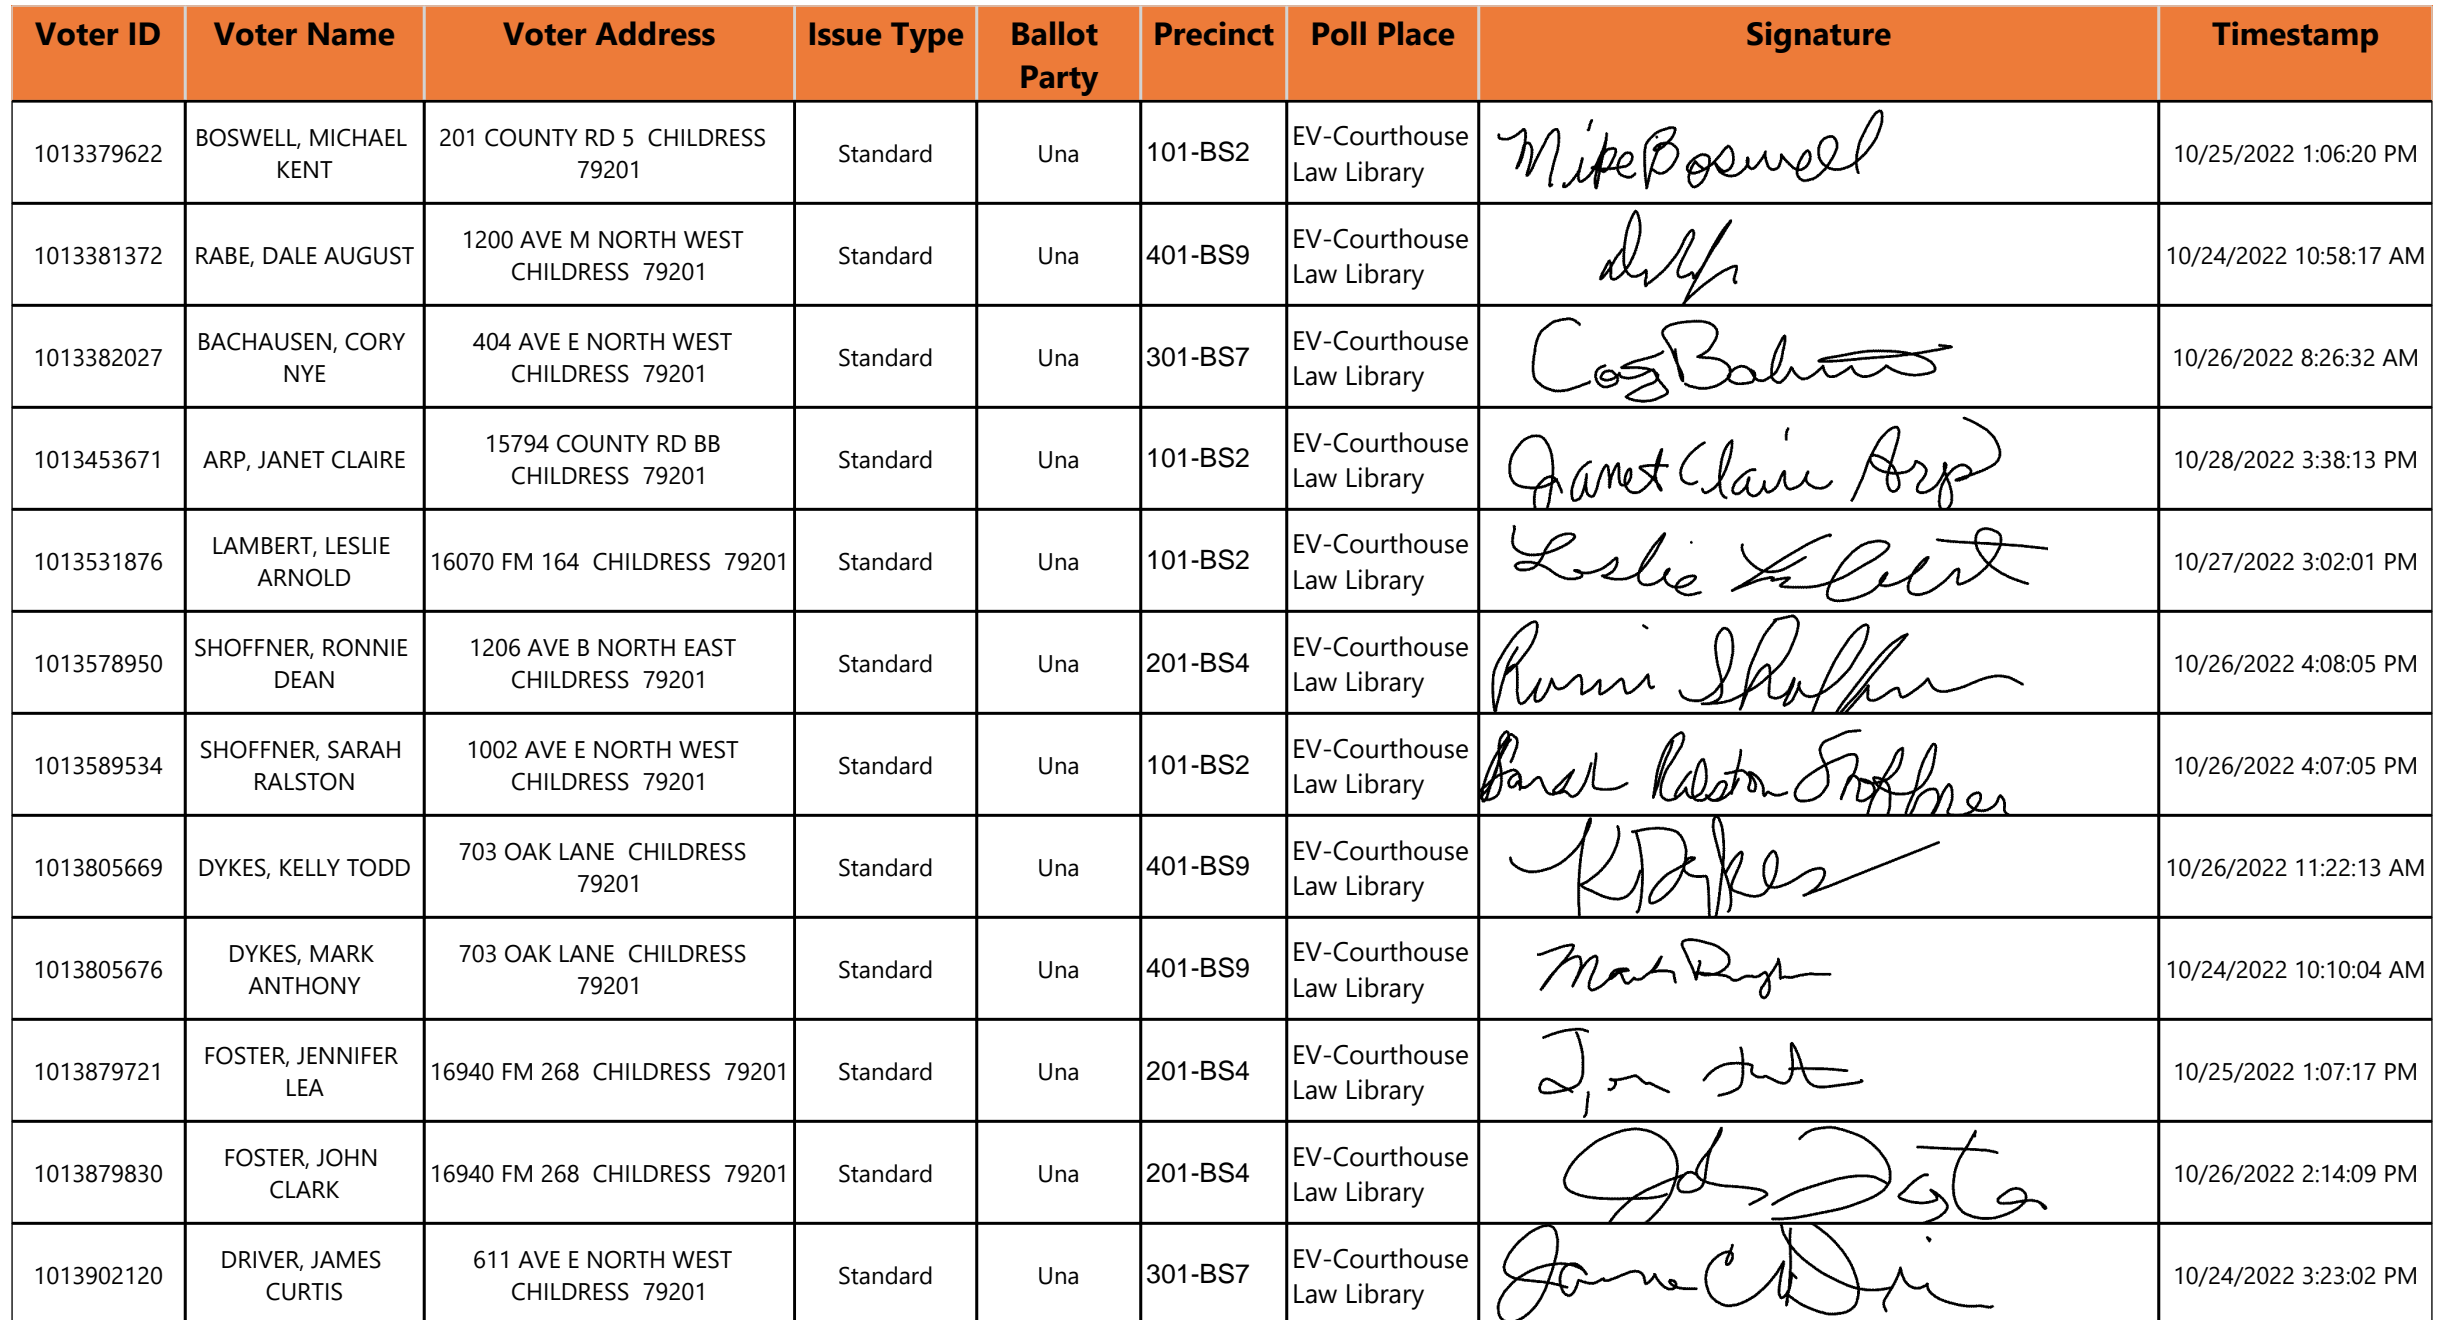 Voter ID Voter Name Voter Address Issue Type Ballot Party Precinct Poll Place Signature Timestamp
1013379622 BOSWELL, MICHAEL KENT 201 COUNTY RD 5 CHILDRESS 79201 Standard Una 101-BS2 EV-Courthouse Law Library Mike Boswell 10/25/2022 1:06:20 PM
1013381372 RABE, DALE AUGUST 1200 AVE M NORTH WEST CHILDRESS 79201 Standard Una 401-BS9 EV-Courthouse Law Library 10/24/2022 10:58:17 AM
1013382027 BACHAUSEN, CORY NYE 404 AVE E NORTH WEST CHILDRESS 79201 Standard Una 301-BS7 EV-Courthouse Law Library 10/26/2022 8:26:32 AM
1013453671 ARP, JANET CLAIRE 15794 COUNTY RD BB CHILDRESS 79201 Standard Una 101-BS2 EV-Courthouse Law Library Janet Claire Arp 10/28/2022 3:38:13 PM
1013531876 LAMBERT, LESLIE ARNOLD 16070 FM 164 CHILDRESS 79201 Standard Una 101-BS2 EV-Courthouse Law Library Leslie 10/27/2022 3:02:01 PM
1013578950 SHOFFNER, RONNIE DEAN 1206 AVE B NORTH EAST CHILDRESS 79201 Standard Una 201-BS4 EV-Courthouse Law Library 10/26/2022 4:08:05 PM
1013589534 SHOFFNER, SARAH RALSTON 1002 AVE E NORTH WEST CHILDRESS 79201 Standard Una 101-BS2 EV-Courthouse Law Library Sarah Ralston Shoffner 10/26/2022 4:07:05 PM
1013805669 DYKES, KELLY TODD 703 OAK LANE CHILDRESS 79201 Standard Una 401-BS9 EV-Courthouse Law Library K Dykes 10/26/2022 11:22:13 AM
1013805676 DYKES, MARK ANTHONY 703 OAK LANE CHILDRESS 79201 Standard Una 401-BS9 EV-Courthouse Law Library 10/24/2022 10:10:04 AM
1013879721 FOSTER, JENNIFER LEA 16940 FM 268 CHILDRESS 79201 Standard Una 201-BS4 EV-Courthouse Law Library 10/25/2022 1:07:17 PM
1013879830 FOSTER, JOHN CLARK 16940 FM 268 CHILDRESS 79201 Standard Una 201-BS4 EV-Courthouse Law Library 10/26/2022 2:14:09 PM
1013902120 DRIVER, JAMES CURTIS 611 AVE E NORTH WEST CHILDRESS 79201 Standard Una 301-BS7 EV-Courthouse Law Library 10/24/2022 3:23:02 PM